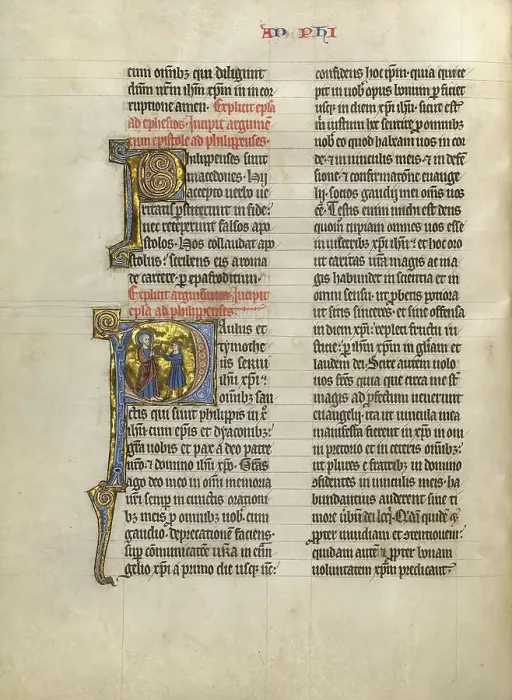 AD PHI
cum omībꝫ qui diligunt
dūm nr̄m ih̄m xp̄m in in cor
ruptione amen· Explicit ep̄la
ad ephesios· Incipit argume
tum epistole ad philippenses·
Philipenses sunt
macedones· Hii
accepto uerbo ue
ritatis ꝑstiterunt in fide·
nec receperunt falsos apo
stolos· Hos collaudat apo
stolus· scribens eis a roma
de carcere· ꝑ epafroditum·
Explicit argumentum· Incipit
ep̄la ad philippenses·
Paulus et
tymothe
us serui
ih̄u xp̄i·
omībꝫ san
ctis qui sunt philippis in xp̄o
ih̄u cum ep̄is et dyaconibꝫ·
gr̄a uobis et pax a deo patre
nr̄o ⁊ domino ih̄u xp̄o· Gr̄as
ago deo meo in om̄i memoria
ur̄i semꝑ in cunctis orationi
bꝫ meis ꝑ omnibꝫ uob̄· cum
gaudio· deprecatione faciens·
suꝑ communicatōe ur̄a in euan
gelio xp̄i a primo die usqꝫ nūc·
confidens hoc ip̄m· quia qui ce
pit in uob̄ opus bonum ꝑficiet
usqꝫ in diem xp̄i ih̄u· sicut est
m̄ iustum hc̄ sentire ꝑ omnibꝫ
uob̄ eo quod habeam uos in cor
de· ⁊ in uinculis meis· ⁊ in defen
sione· ⁊ confirmatōne euange
lii· socios gaudii mei om̄s uos
eē· Testis enim michi est deus
quom̄ cupiam omnes uos esse
in uisceribꝫ xp̄i ih̄u· et hoc oro
ut caritas ur̄a magis ac ma
gis habundet in scientia et in
omni sensu· ut ꝓbetis potiora
ut sitis sinceres· et sine offensa
in diem xp̄i· repleti fructu iu
sticie· ꝑ ih̄m xp̄m in gl̄iam et
laudem dei· Scire autem uolo
uos fr̄es quia que circa me st̄
magis ad ꝓfectum uenerunt
euangelij· ita ut uincula mea
manifesta fierent in xp̄o in om̄i
in pretorio et in ceteris omībꝫ·
ut plures e fratribꝫ in domino
ofidentes in uinculis meis· ha
bundantius auderent sine ti
more uerbū dei loqi· Qd̄am quidē ⁊
ꝓpter inuidiam et ꝯtentionem·
quidam autē ⁊ ꝓpter bonam
uoluntatem xp̄m predicant·